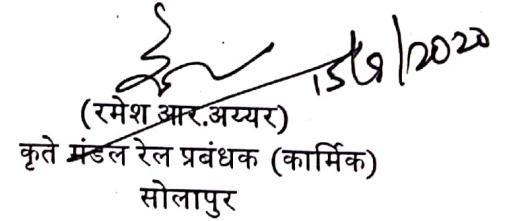 15/9/2020
(रमेश आर.अय्यर)
कृते मंडल रेल प्रबंधक (कार्मिक)
सोलापुर